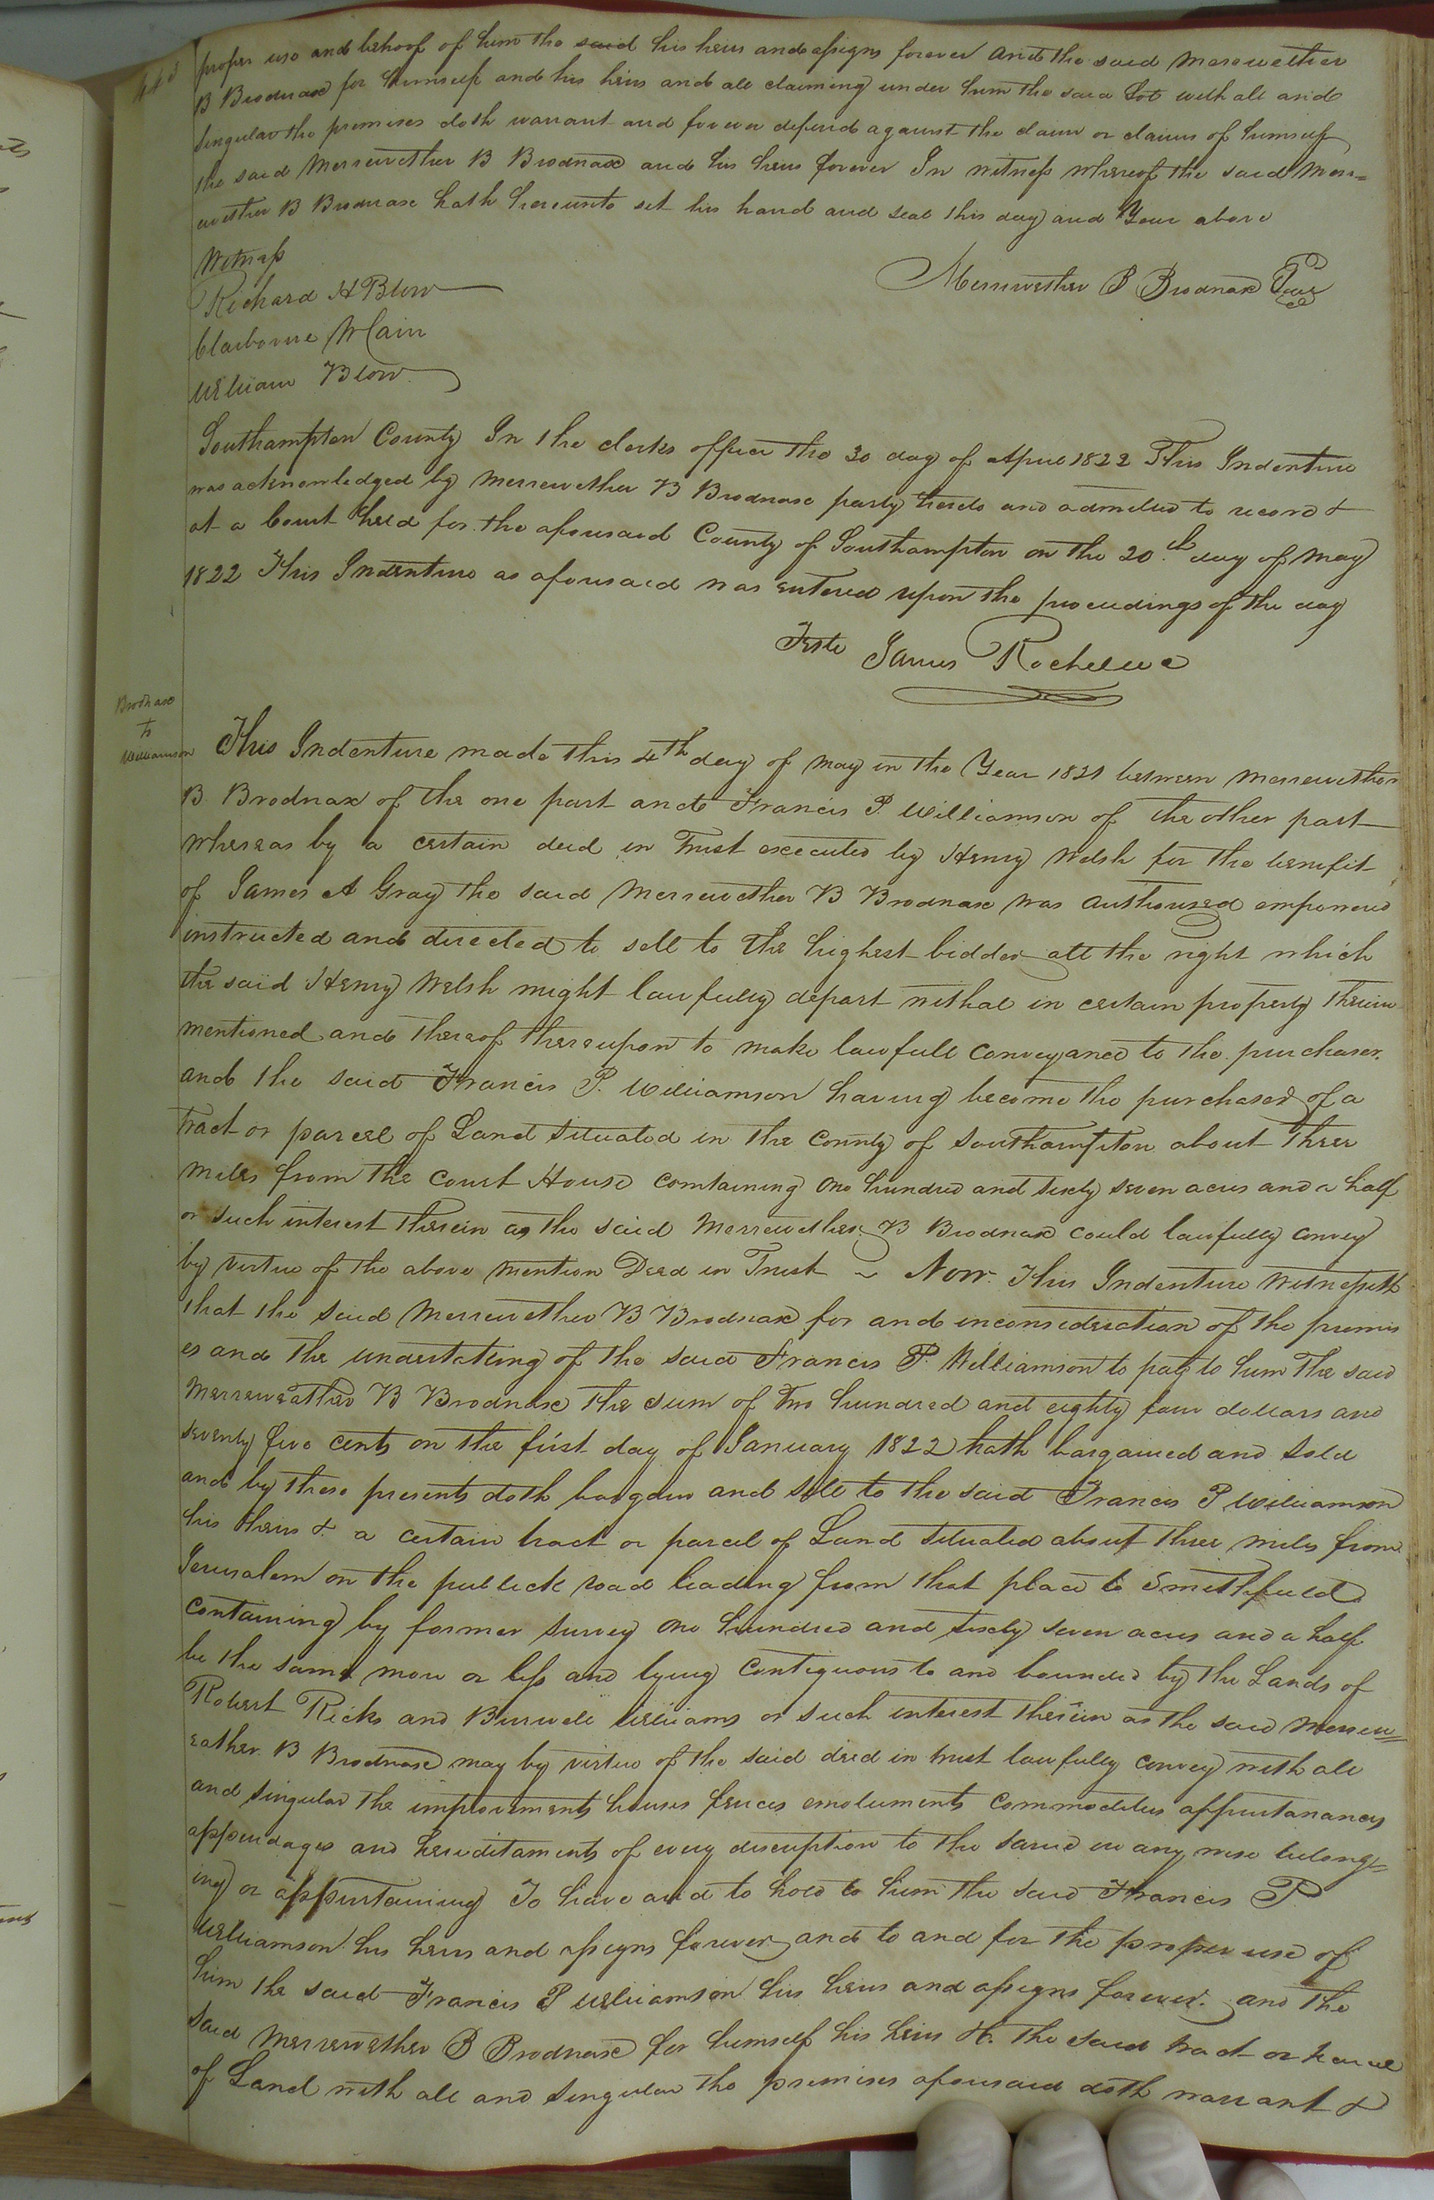 proper use and behoof of him the said his heirs and assigns forever and the said Merewether
B Brodnax for himself and his heirs and all claiming under him the said Lot with all and
Singular the premises doth warrant and forever defend against the claim or claims of himself
the said Merrewether B Brodnax and his heirs forever In witness whereof the said Merr=
ewether B Brodnax hath hereunto set his hand and seal this day and Year above
Witness
Merrewether B Brodnax Seal
Richard H Blow
Claiborne
William Blow
Southampton County In the clerks office the 30 day of April 1822 This Indenture
was acknowledged by Merrewether B Brodnax party hereto and admitted to record &
at a Court held for the aforesaid County of Southampton on the 20th day of May
1822 This Indenture as aforesaid was entered upon the proceedings of the day
Teste James Rochelle
Brodnax
to
Williamson
This Indenture made this 4th day of May in the Year 1821 between Merrewether
B Brodnax of the one part and Francis P. Williamson of the other part
whereas by a certain deed in Trust executed by Henry Welsh for the benefit
of James A Gray the said Merrewether B Brodnax was authorised empowered
instructed and directed to sell to the highest bidder all the right which
the said Henry Welsh might lawfully depart withal in certain property therein
mentioned and thereof thereupon to make lawfull conveyance to the purchaser.
and the said Francis P. Williamson having become the purchaser of a
Tract or parcel of Land situated in the County of Southampton about three
miles from the Court House containing one hundred and sixty seven acres and a half
or such interest therein as the said Merrewether B Brodnax could lawfully convey
by virtue of the above mention Deed in Trust ~ Now This Indenture Witnesseth
that the said Merrewether B Brodnax for and inconsideration of the premis
es and the undertaking of the said Francis P. Williamson to pay to him the said
Merreweather B Brodnax the sum of Two hundred and eighty four dollars and
seventy five cents on the first day of January 1822 hath bargained and sold
and by these presents doth bargain and sell to the said Francis P Williamson
his heirs & a certain tract or parcel of Land situated about three miles from
Jerusalem on the publick road leading from that place to Smithfield
containing by former survey one hundred and sixty seven acres and a half
be the same more or less and lying contiguous to and bounded by the Lands of
Robert Ricks and Burwell Williams or such interest therein as the said Merrew=
eather B Brodnax may by virtue of the said deed in trust lawfully convey with all
and singular the improvements houses fences emoluments commodities appurtanances
appendages and hereditaments of every description to the same in any wise belong=
ing or appurtaining To have and to hold to him the said Francis P
Williamson his heirs and assigns forever and to and for the proper use of
him the said Francis P Williamson his heirs and assigns forever. and the
said Merrewether B Brodnax for himself his heirs &c the said tract or parcel
of Land with all and singular the premises aforesaid doth warrant &